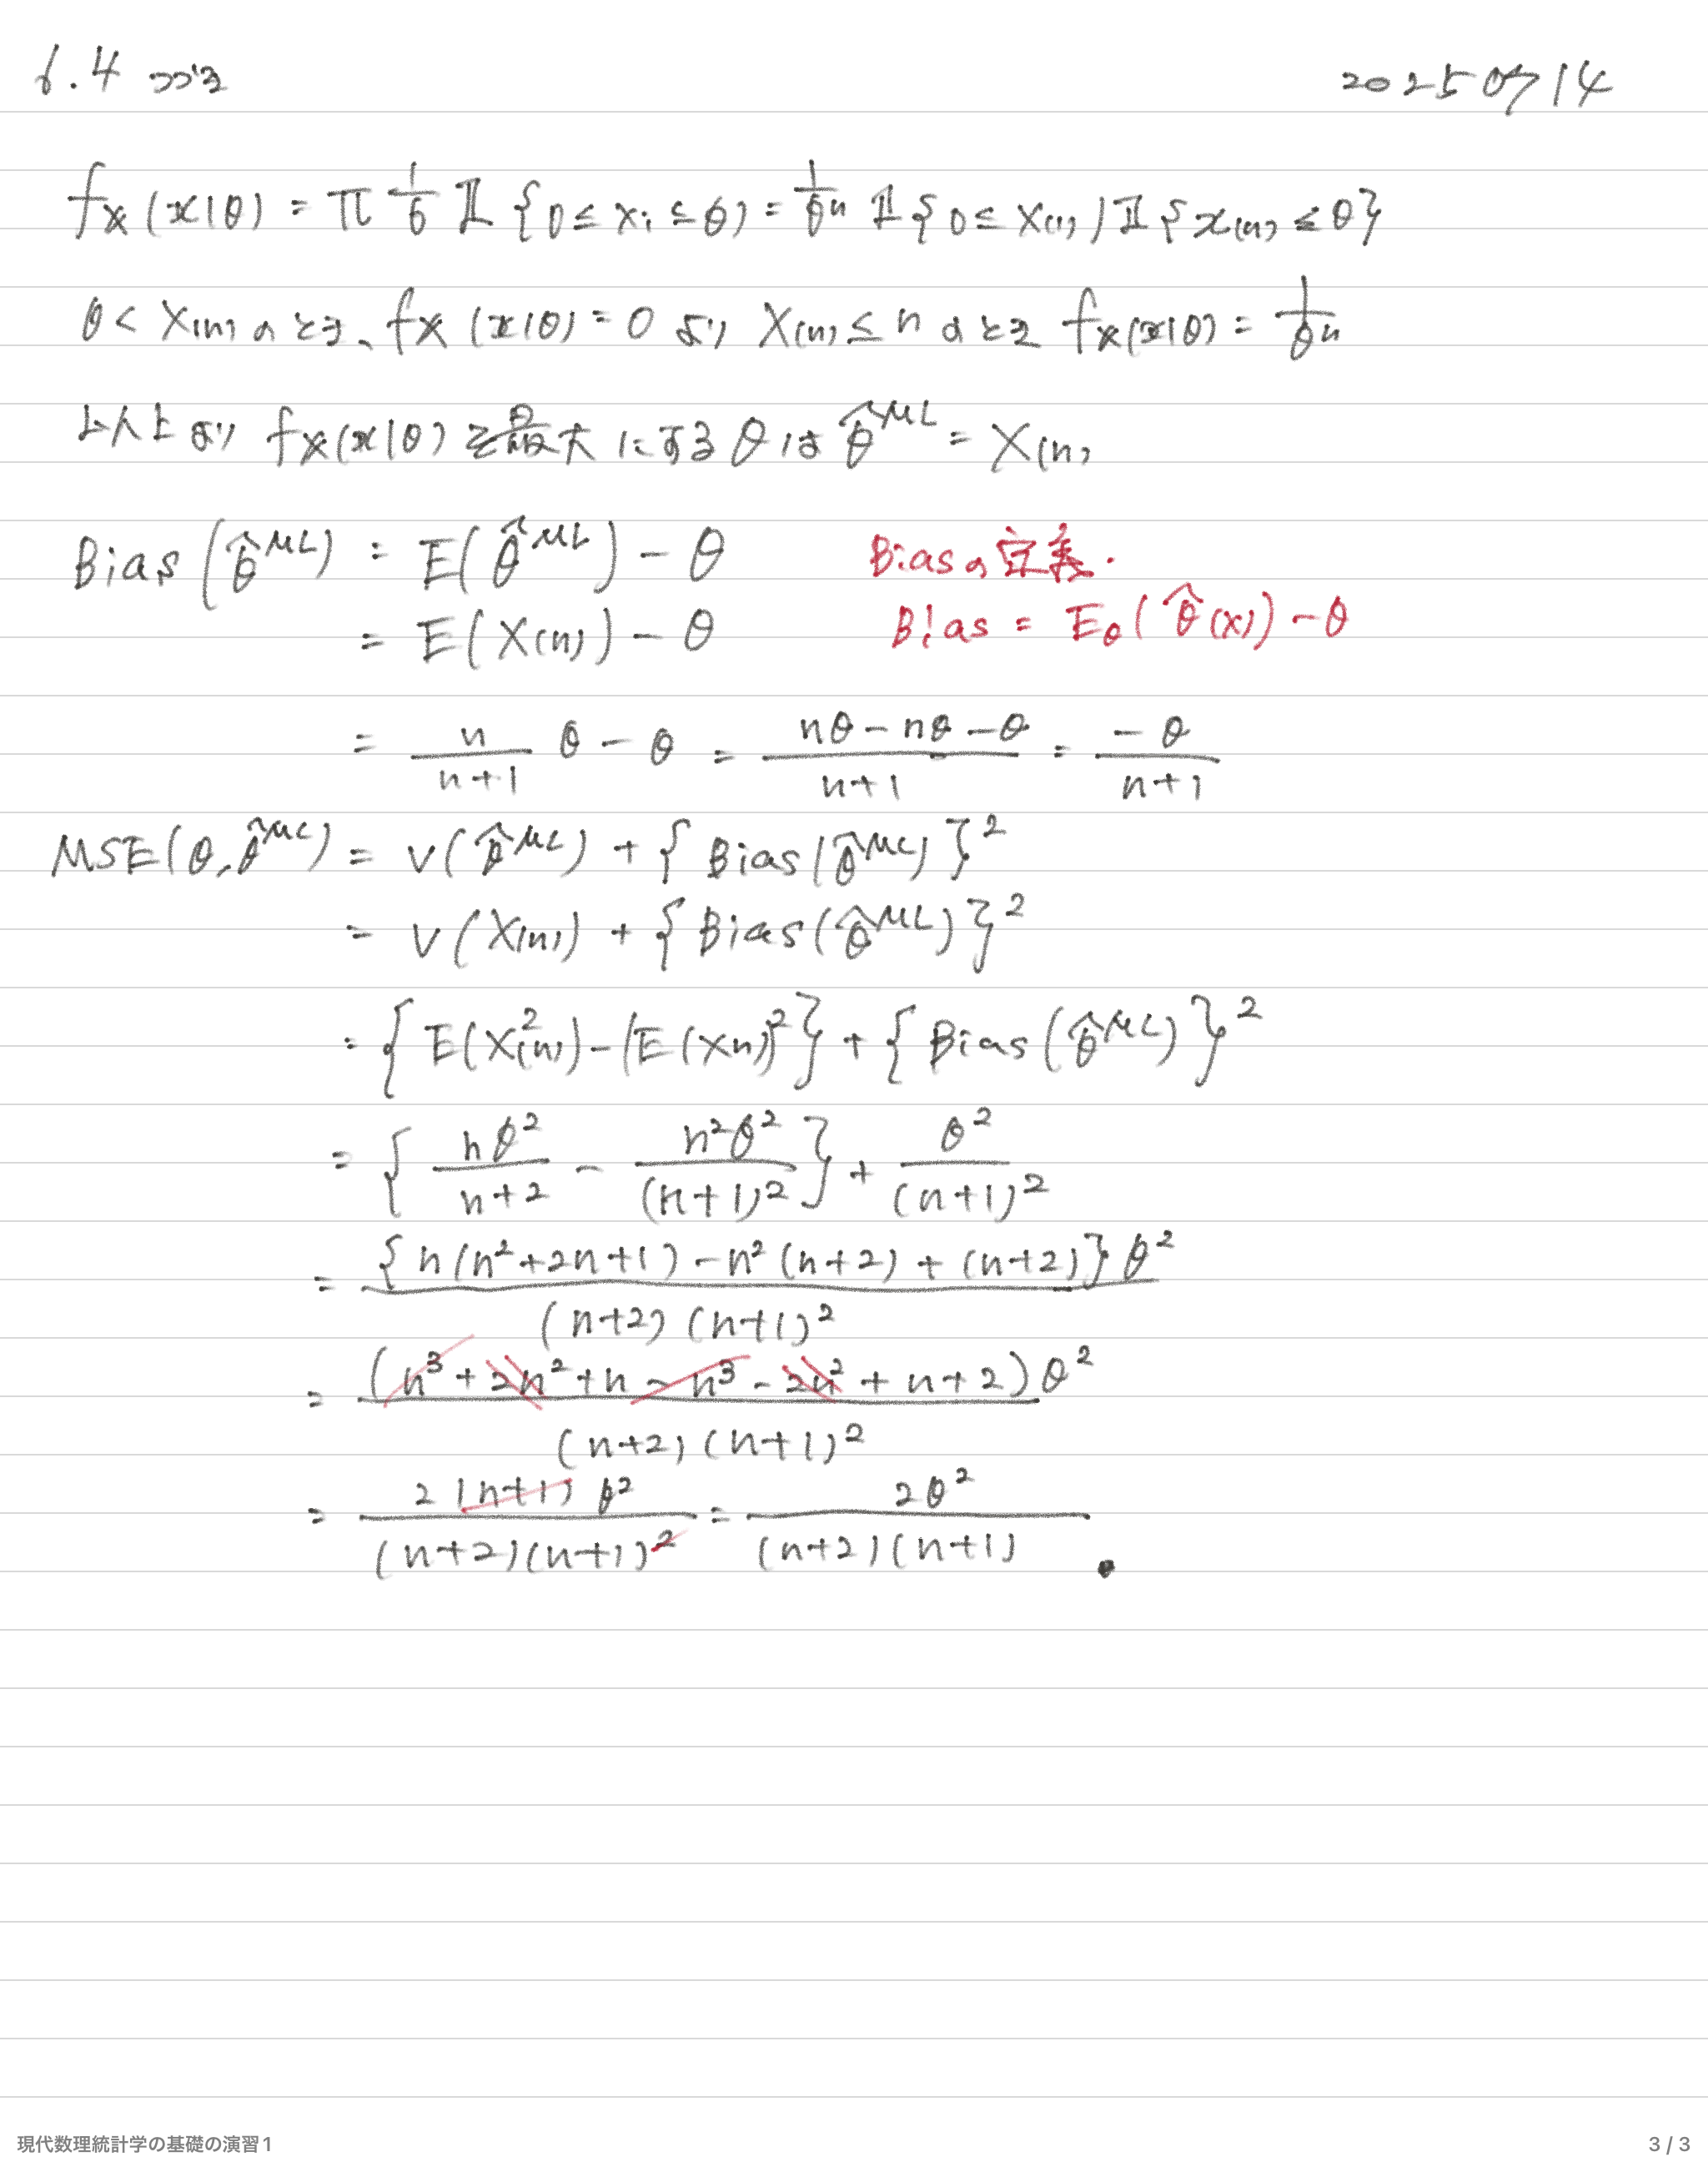 6.4 つづき 20250714
fx(x|θ) = π 1/θ 𝟙{0≤xi≤θ) = 1/θ^n 𝟙{0≤X(1)) 𝟙{x(n)≤θ}
θ<X(n)のとき、fx(x|θ)=0 より X(n)≤nのとき fx(x|θ)=1/θ^n
以上より fx(x|θ)を最大にするθは θ̂^ML = X(n)
Bias(θ̂^ML) = E(θ̂^ML) − θ Biasの定義.
= E(X(n)) − θ Bias = Eθ(θ̂(x)) − θ
= n/(n+1) θ − θ = (nθ − nθ − θ)/(n+1) = −θ/(n+1)
MSE(θ, θ̂^ML) = V(θ̂^ML) + {Bias(θ̂^ML)}^2
= V(X(n)) + {Bias(θ̂^ML)}^2
= {E(X(n)^2) − (E(Xn))^2} + {Bias(θ̂^ML)}^2
= {nθ^2/(n+2) − n^2θ^2/(n+1)^2} + θ^2/(n+1)^2
= {n(n^2+2n+1) − n^2(n+2) + (n+2)}θ^2 / (n+2)(n+1)^2
= (n^3+2n^2+n − n^3 − 2n^2 + n+2)θ^2 / (n+2)(n+1)^2
= 2(n+1)θ^2 / (n+2)(n+1)^2 = 2θ^2 / (n+2)(n+1) .
現代数理統計学の基礎の演習1 3 / 3